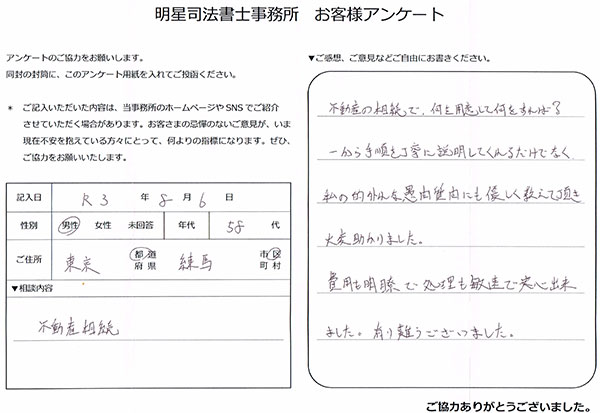 明星司法書士事務所 お客様アンケート
アンケートのご協力をお願いします。
同封の封筒に、このアンケート用紙を入れてご投函ください。
* ご記入いただいた内容は、当事務所のホームページやSNSでご紹介
させていただく場合があります。お客さまの忌憚のないご意見が、いま
現在不安を抱えている方々にとって、何よりの指標になります。ぜひ、
ご協力をお願いいたします。
記入日 R3 年 8 月 6 日
性別 男性 女性 未回答 年代 58 代
ご住所 東京 都 道 府 県 練馬 市 区 町 村
▼相談内容
不動産相続
▼ご感想、ご意見などご自由にお書きください。
不動産の相続で、何を用意して何をすれば?
一から手順を丁寧に説明してくれるだけでなく
私の的外れな愚問質問にも優しく教えて頂き
大変助かりました。
費用も明瞭で処理も敏速で安心出来
ました。有り難うございました。
ご協力ありがとうございました。